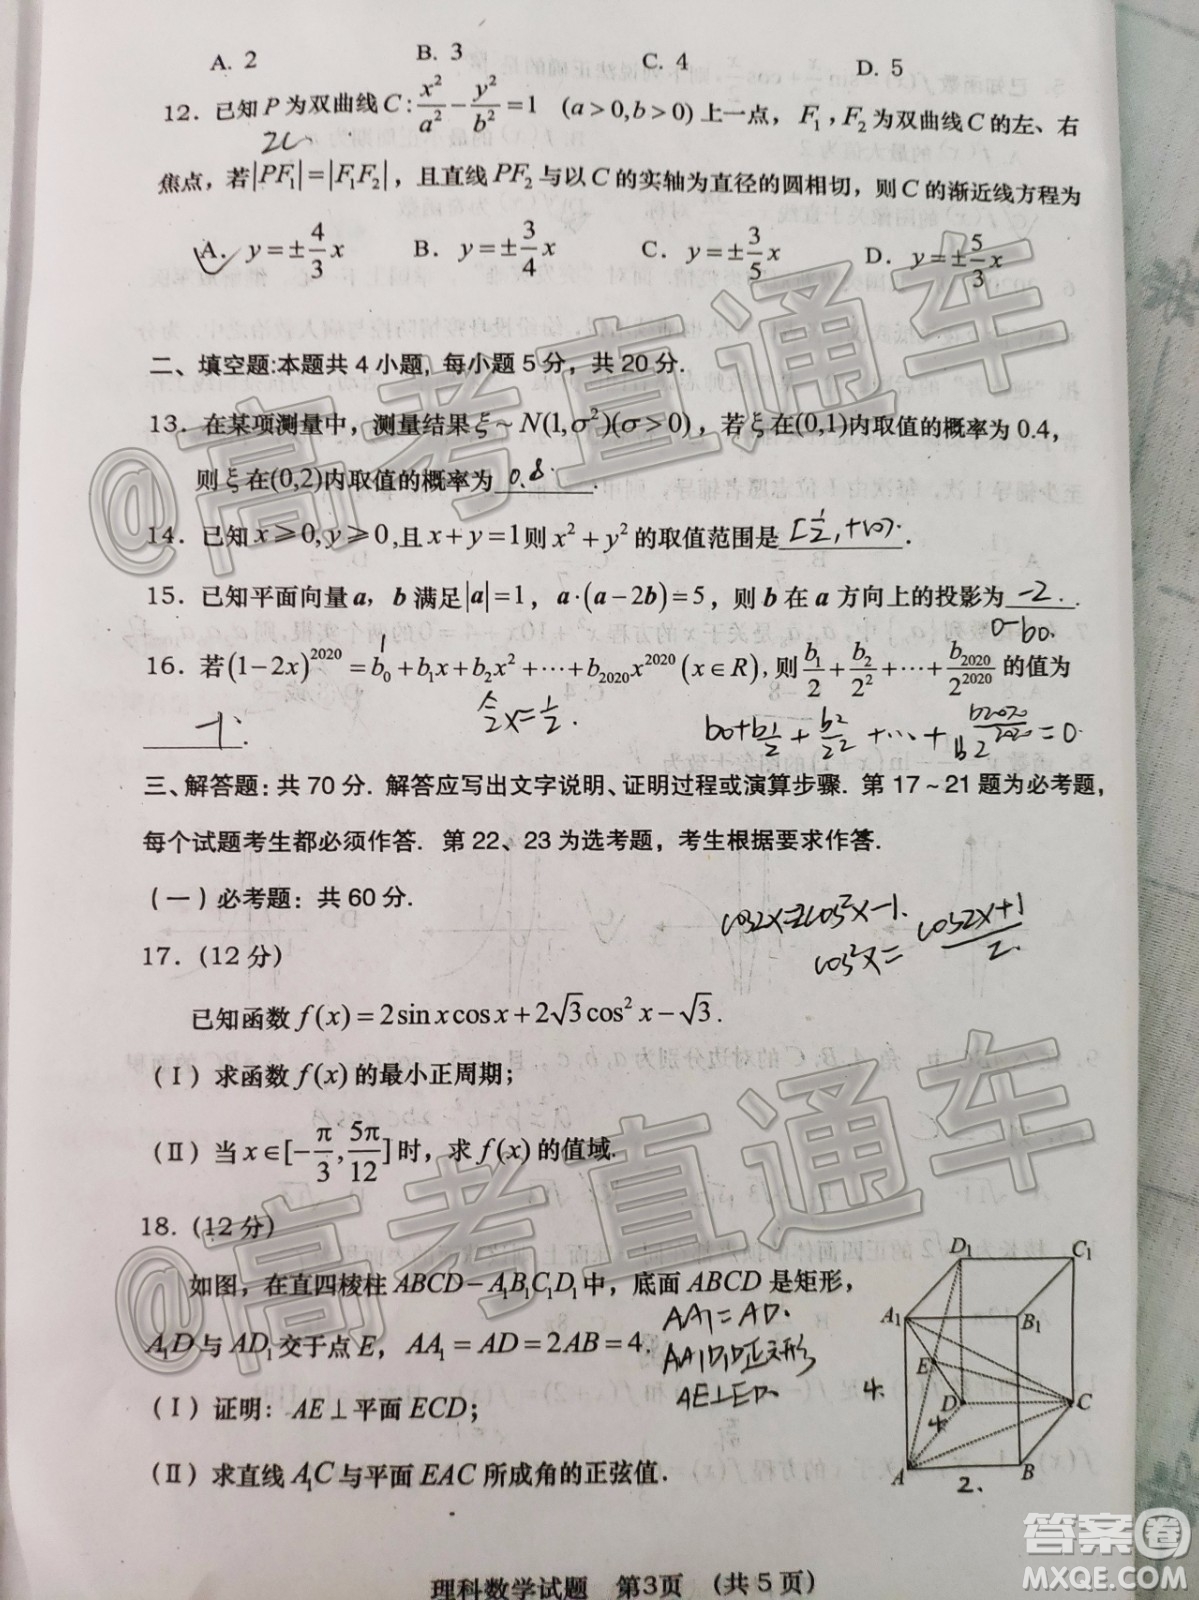 A. 2 B. 3 C. 4 D. 5
12. 已知 P 为双曲线 C: x²/a² − y²/b² = 1 (a>0,b>0) 上一点, F₁, F₂ 为双曲线 C 的左、右
2C
焦点, 若|PF₁|=|F₁F₂|, 且直线 PF₂ 与以 C 的实轴为直径的圆相切, 则 C 的渐近线方程为
A. y=±4/3 x B. y=±3/4 x C. y=±3/5 x D. y=±5/3 x
二、填空题:本题共 4 小题, 每小题 5 分, 共 20 分.
13. 在某项测量中, 测量结果 ξ~N(1,σ²)(σ>0), 若 ξ 在(0,1)内取值的概率为 0.4,
则 ξ 在(0,2)内取值的概率为 0.8 .
14. 已知 x⩾0, y⩾0, 且 x+y=1则 x²+y² 的取值范围是 [1/2, +∞) .
15. 已知平面向量 a, b 满足|a|=1, a·(a−2b)=5, 则 b 在 a 方向上的投影为 −2 .
0-b0.
1
16. 若(1−2x)²⁰²⁰=b₀+b₁x+b₂x²+⋯+b₂₀₂₀x²⁰²⁰(x∈R), 则 b₁/2+b₂/2²+⋯+b₂₀₂₀/2²⁰²⁰ 的值为
-1 .
令x=1/2.
b0+b1/2+b2/2²+…+b2020/2²⁰²⁰=0.
三、解答题: 共 70 分. 解答应写出文字说明、证明过程或演算步骤. 第 17~21 题为必考题,
每个试题考生都必须作答. 第 22、23 为选考题, 考生根据要求作答.
(一) 必考题: 共 60 分.
cos2x=2cos²x-1.
cos²x=(cos2x+1)/2.
17. (12 分)
已知函数 f(x)=2sinxcosx+2√3cos²x−√3.
(Ⅰ) 求函数 f(x) 的最小正周期;
(Ⅱ) 当 x∈[−π/3,5π/12]时, 求 f(x) 的值域.
18. (12 分)
如图, 在直四棱柱 ABCD−A₁B₁C₁D₁ 中, 底面 ABCD 是矩形,
A₁D 与 AD₁ 交于点 E, AA₁=AD=2AB=4.
(Ⅰ) 证明: AE⊥平面 ECD;
(Ⅱ) 求直线 A₁C 与平面 EAC 所成角的正弦值.
AA1=AD.
AA1D1D正方形
AE⊥ED.
D₁ C₁
A₁ B₁
E
4.
D C
4
A B
2.
理科数学试题 第3页 (共 5 页)
@高考直通车
@高考直通车
答案卷
MXQE.COM